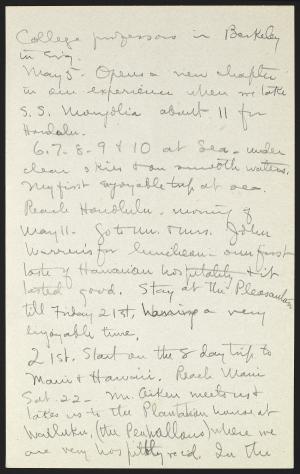 College professors in Berkeley
in Eng.
May 5 - Opens a new chapter
in our experience when we take
S.S. Mongolia about 11 for
Honolulu.
6. 7. 8. 9 & 10 at Sea - under
clear skies & on smooth waters.
My first enjoyable trip at sea.
Reach Honolulu - morning of
May 11 - Go to Mr. & Mrs. John
for luncheon - our first
taste of Hawaiian hospitality & it
tasted good. Stay at the Pleasanton
till Friday 21st, having a very
enjoyable time.
21st. Start on the 8 day trip to
Maui & Hawaii. Reach Maui
Sat. 22 - Mr. Aiken meets us &
takes us to the Plantation house at
Wailuku, (the Penhallows) where we
are very hospitably rec'd. In the